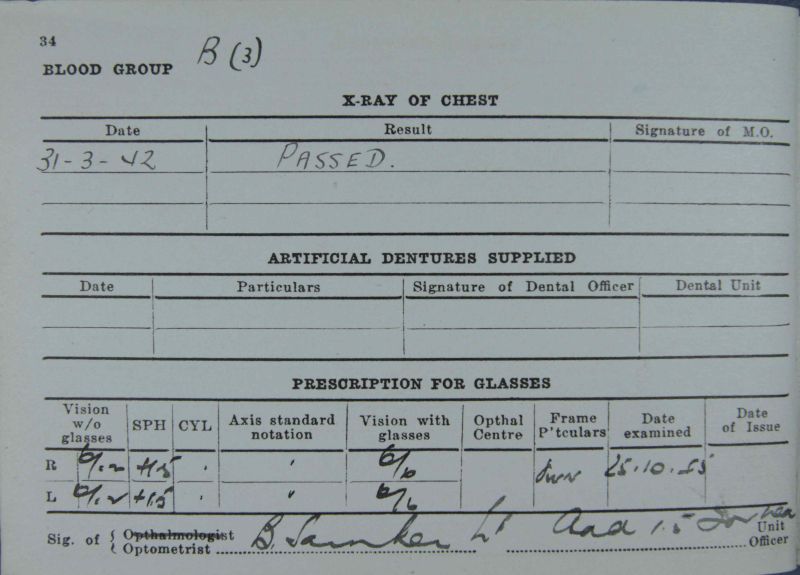 34
BLOOD GROUP B (3)
X-RAY OF CHEST
Date Result Signature of M.O.
31-3-42 PASSED.
ARTIFICIAL DENTURES SUPPLIED
Date Particulars Signature of Dental Officer Dental Unit
PRESCRIPTION FOR GLASSES
Vision w/o glasses SPH CYL Axis standard notation Vision with glasses Opthal Centre Frame P'tculars Date examined Date of Issue
R 6/12 +1.5 6/6 25.10.55
L 6/12 +1.5 6/6
Sig. of { Opthalmologist B. Lt Add 1.5 Unit
Optometrist Officer